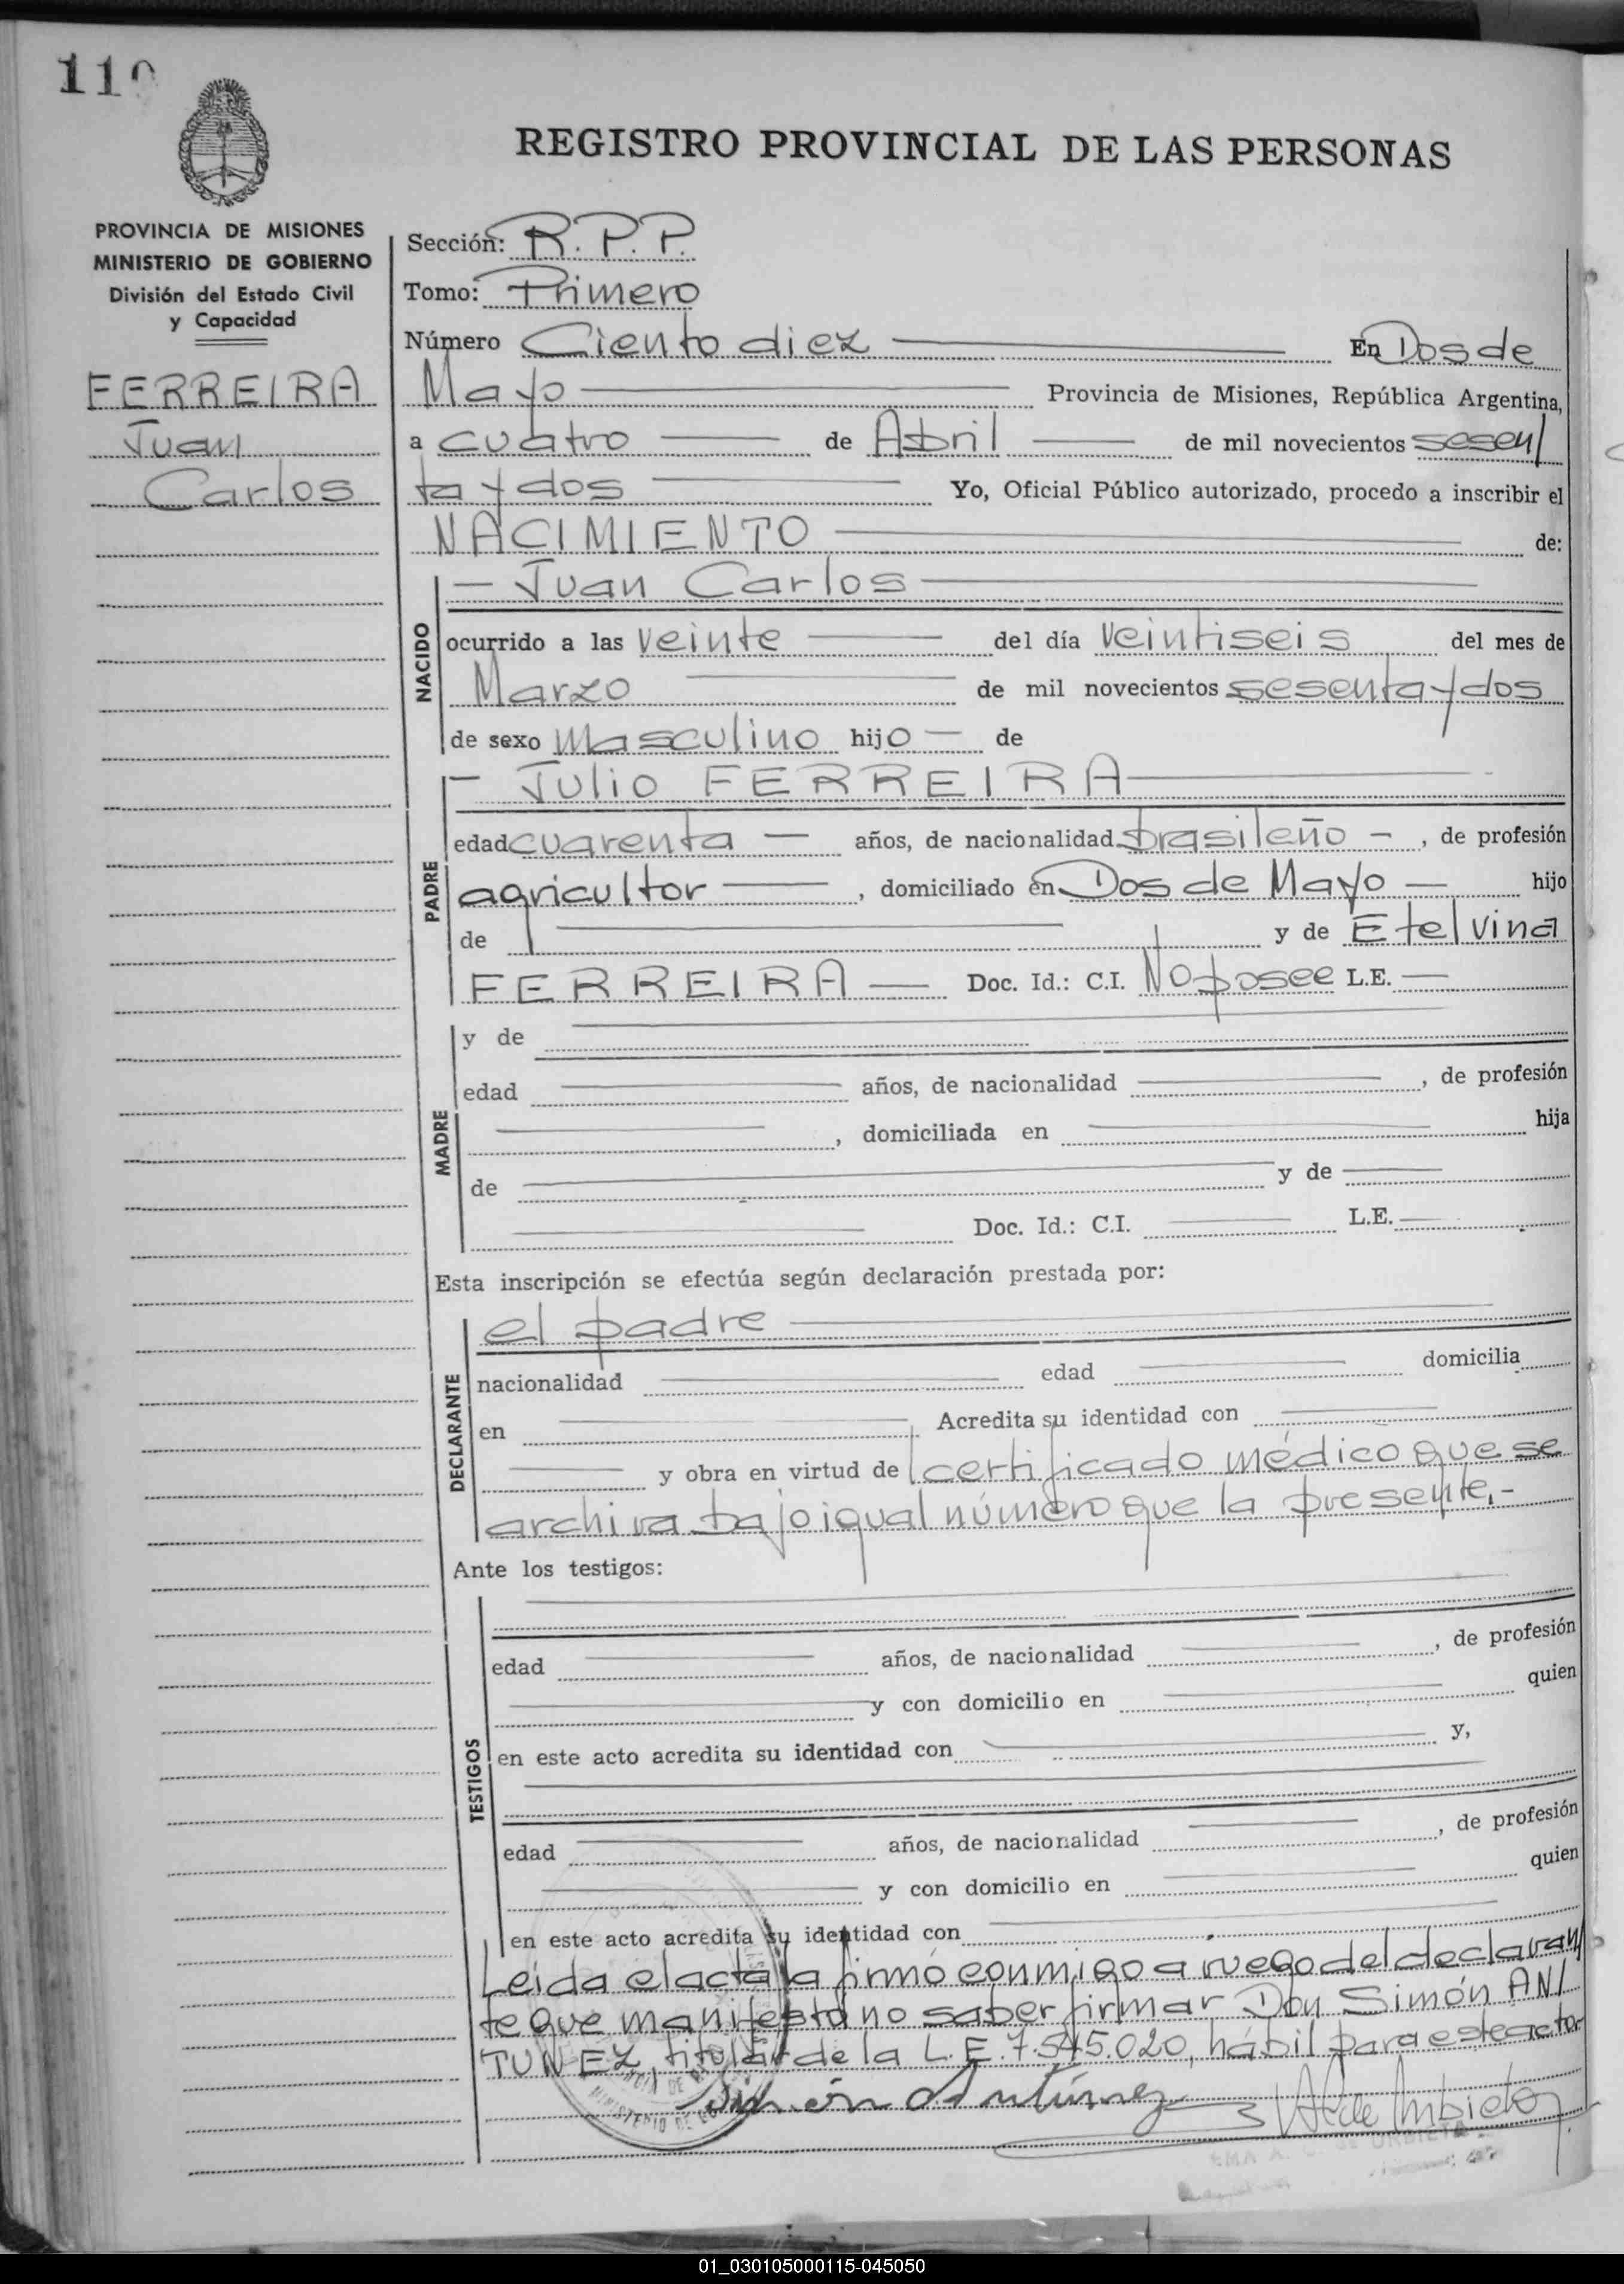 110
REGISTRO PROVINCIAL DE LAS PERSONAS
PROVINCIA DE MISIONES
MINISTERIO DE GOBIERNO
División del Estado Civil
y Capacidad
FERREIRA
Juan
Carlos
Sección: R.P.P.
Tomo: Primero
Número Ciento diez En Dos de
Mayo Provincia de Misiones, República Argentina,
a cuatro de Abril de mil novecientos sesen/
ta y dos Yo, Oficial Público autorizado, procedo a inscribir el
NACIMIENTO de:
NACIDO
— Juan Carlos
ocurrido a las veinte del día veintiseis del mes de
Marzo de mil novecientos sesenta y dos
de sexo Masculino hijo — de
PADRE
— Julio FERREIRA
edad cuarenta — años, de nacionalidad brasileño —, de profesión
agricultor, domiciliado en Dos de Mayo — hijo
de y de Etelvina
FERREIRA — Doc. Id.: C.I. No posee L.E. —
MADRE
y de
edad años, de nacionalidad , de profesión
, domiciliada en hija
de y de
Doc. Id.: C.I. L.E.
Esta inscripción se efectúa según declaración prestada por:
DECLARANTE
el padre
nacionalidad edad domicilia
en Acredita su identidad con
y obra en virtud de certificado médico que se
archiva bajo igual número que la presente.-
Ante los testigos:
TESTIGOS
edad años, de nacionalidad , de profesión
y con domicilio en quien
en este acto acredita su identidad con y,
edad años, de nacionalidad , de profesión
y con domicilio en quien
en este acto acredita su identidad con
Leida el acta la firmó conmigo a ruego del declaran/
te que manifestó no saber firmar Don Simón AN/
TUNEZ, titular de la L.E. 7.545.020, hábil para este acto-
Simón Antúnez
01_030105000115-045050